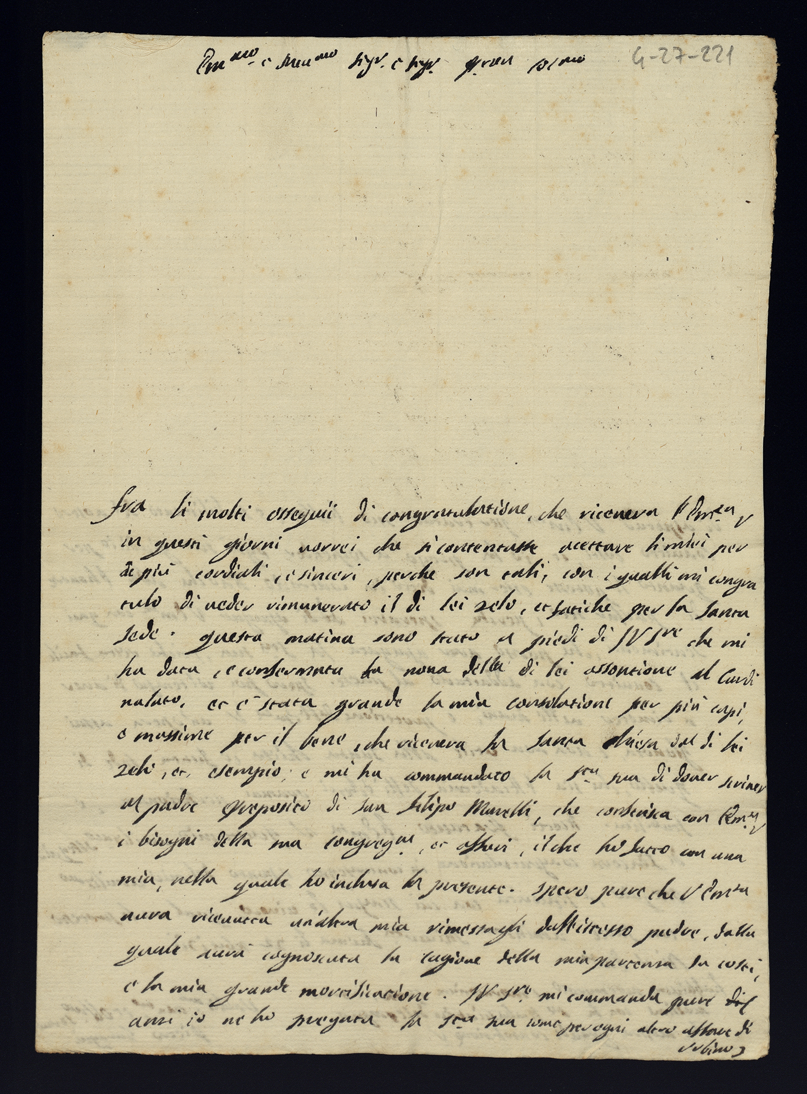 Em.mo e Rev.mo Sig.r e Sig.r 
G-27-221
Fra li molti ossequii di congratulatione, che riceverà V Em.za
in questi giorni vorrei che si contentasse accettare li miei per
di più cordiali, e sinceri, perche son tali, con i qualli mi congra
tulo di veder rimunerato il di lei zelo, et fatiche per la Santa
Sede. questa matina sono stato a piedi di che mi
ha data, e confermata la nova della di lei assontione al Cardi
nalato, et è stata grande la mia consolatione per più capi,
e massime per il bene, che riceverà la Santa chiesa dal di lei
zelo, et esempio; e mi ha commandato la S.tà sua di dover scriver
al padre preposito di san Filipo Marelli, che conferisca con V Em.za
i bisogni della sua congreg.ne, et affari, il che ho fatto con una
mia, nella quale ho inclusa la presente. spero pure che V Em.za
avrà ricevuta un'altra mia rimessagli dall'istesso padre, dalla
quale avrà cognosciuta la cagione della mia partenza da costì,
e la mia grande mortificatione. mi commanda pure
anzi io ne ho pregata la S.tà sua come per ogni altro affare di
Urbino